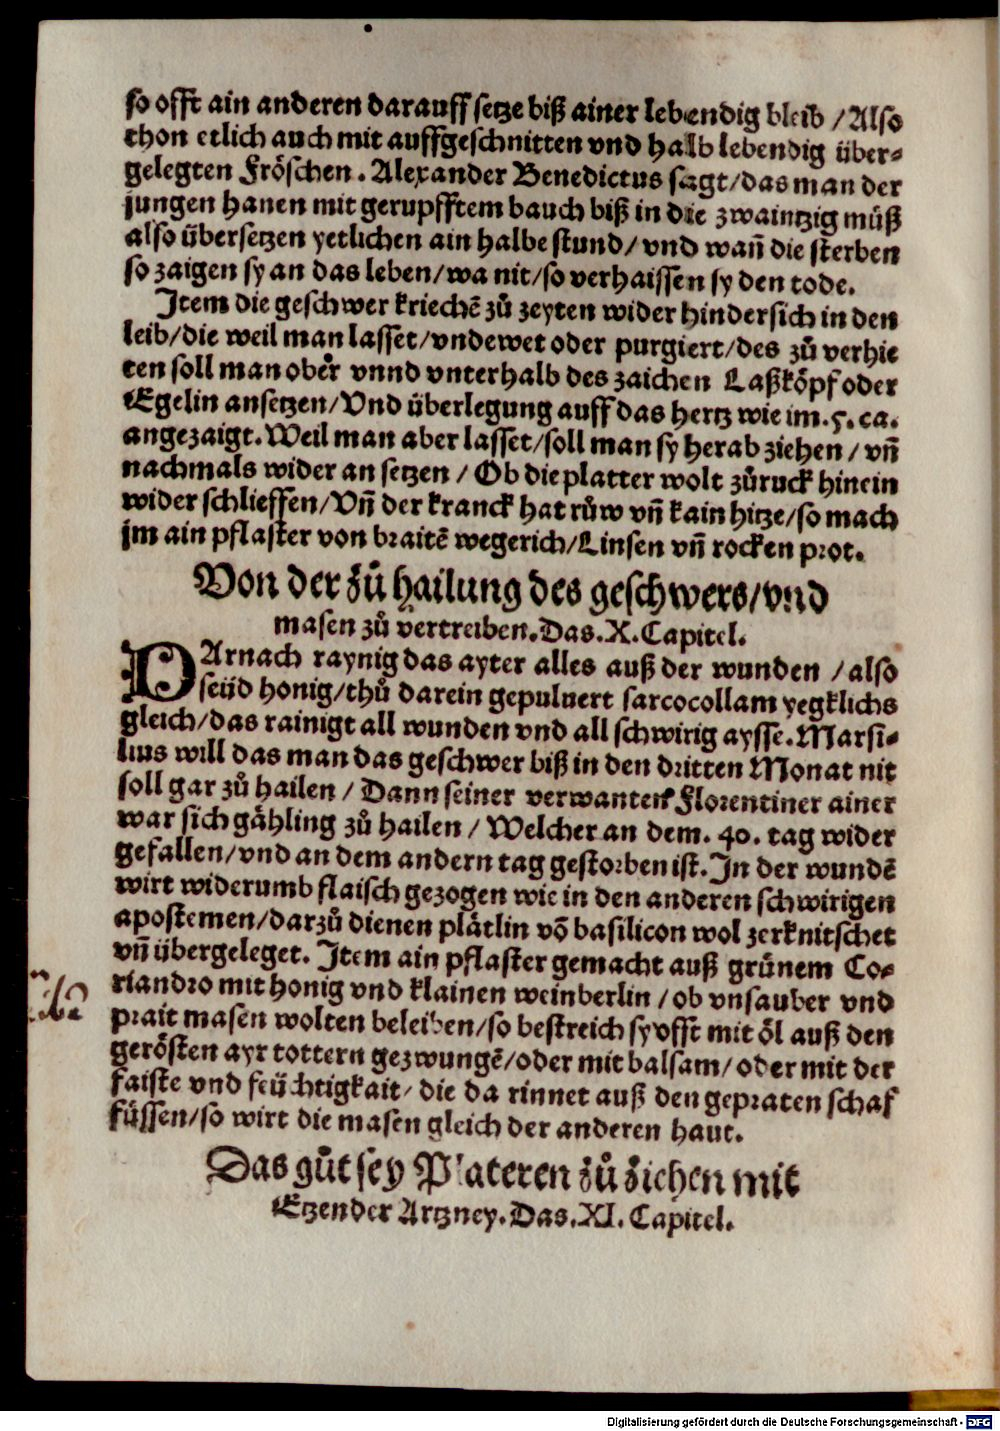 so offt ain anderen darauff setze biß ainer lebendig bleib / Also
thon etlich auch mit auffgeschnitten vnd halb lebendig über-
gelegten Fröschen. Alexander Benedictus sagt/das man der
jungen hanen mit gerupfftem bauch biß in die zwaintzig müß
also übersetzen yetlichen ain halbe stund/ vnd wañ die sterben
so zaigen sy an das leben/wa nit/so verhaissen sy den tode.
Item die geschwer kriechē zů zeyten wider hindersich in den
leib/die weil man lasset/vndewet oder purgiert/des zů verhie
ten soll man ober vnnd vnterhalb des zaichen Laßköpf oder
Egelin ansetzen/Vnd überlegung auff das hertz wie im.5.ca.
angezaigt. Weil man aber lasset/soll man sy herab ziehen / vñ
nachmals wider an setzen / Ob die platter wolt zůruck hinein
wider schlieffen/Vñ der kranck hat růw vñ kain hitze/so mach
jm ain pflaster von braitē wegerich/Linsen vñ rocken prot.
Von der zů hailung des geschwers/vnd
masen zů vertreiben.Das.X.Capitel.
DArnach raynig das ayter alles auß der wunden /also
seüd honig/thů darein gepuluert sarcocollam yegklichs
gleich/das rainigt all wunden vnd all schwirig aysse.Marsi-
lius will das man das geschwer biß in den dritten Monat nit
soll gar zů hailen / Dann seiner verwanten Florentiner ainer
war sich gähling zů hailen / Welcher an dem. 40. tag wider
gefallen/vnd an dem andern tag gestorben ist. In der wundē
wirt widerumb flaisch gezogen wie in den anderen schwirigen
apostemen/darzů dienen plätlin vō basilicon wol zerknitschet
vñ übergeleget. Item ain pflaster gemacht auß grünem Co-
riandro mit honig vnd klainen weinberlin / ob vnsauber vnd
prait masen wolten beleiben/so bestreich sy offt mit öl auß den
gerösten ayr tottern gezwungē/oder mit balsam/ oder mit der
faiste vnd feüchtigkait/ die da rinnet auß den gepraten schaf
füssen/so wirt die masen gleich der anderen haut.
Das gůt sey Plateren zů ziehen mit
Etzender Artzney.Das.XI.Capitel.
Digitalisierung gefördert durch die Deutsche Forschungsgemeinschaft - DFG